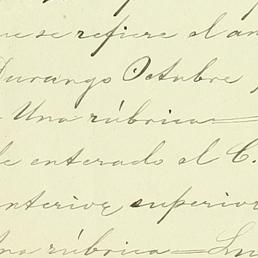 ue se refiere el an
Durango Octubre
- Una rúbrica =
de enterado el C.
anterior superior
Una rúbrica = Lu